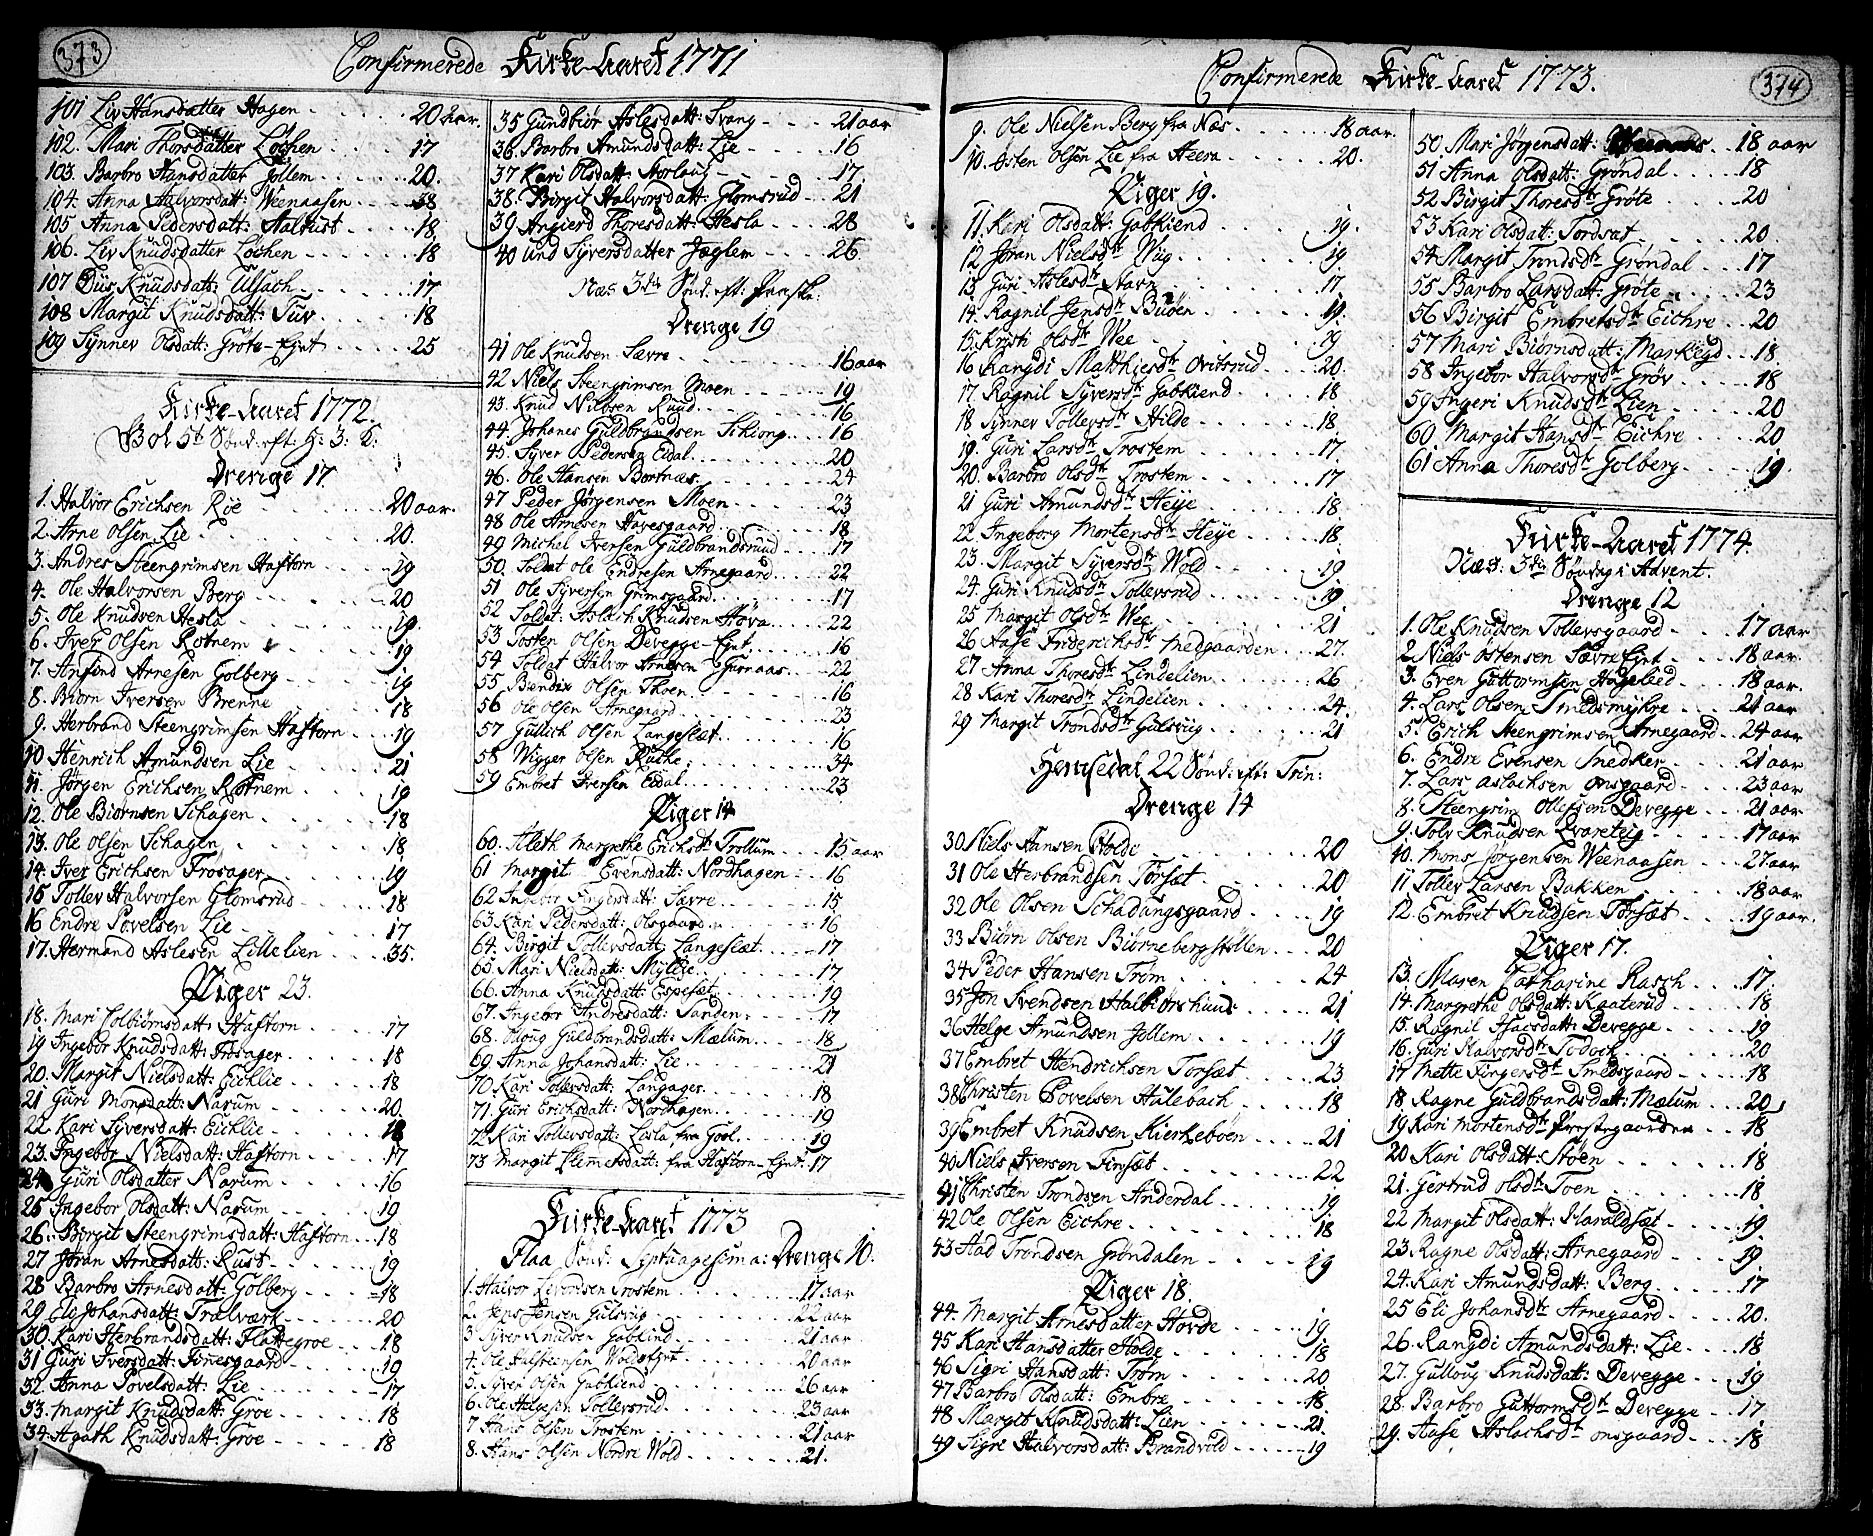 373
Confirmerede Kirke-Aaret 1771
101 Liv Hansdatter Hagen 20 aar.
102. Mari Thorsdatter Lochen 17
103. Barbro Hansdatter Jollem 20.
104. Anna Halvorsdatt: Weenaasen 18
105 Anna Pedersdatt: Aalrust 18
106. Liv Knudsdatter Lochen 18
107 Knudsdatt: Ulsach 17
108 Margit Knudsdatt: Tuv 18
109 Synnev Olsdatt: Grøte-Ejet 25
Kirke-Aaret 1772.
Gol 5t Sønd: eft: H: 3: K:
Drenge 17
1. Halvor Erichsen Røe 20 aar.
2. Arne Olsen Lie 20.
3. Andres Steengrimsen Haftorn 19
4. Ole Halvorsen Berg 20
5. Ole Knudsen Hesla 19.
6. Iver Olsen Rotnem 19
7. Anfind Arnesen Golberg 19
8. Biørn Iversen Brenne 18
9. Herbrand Steengrimsen Haftorn 19
10 Henrich Amundsen Lie 21
11. Jørgen Erichsen Rotnem 19
12. Ole Biørnsen Schagen 18
13. Ole Olsen Schagen 18
14. Iver Erichsen Frøsager 19
15 Tollev Halvorsen Glomsrud 18
16 Endre Povelsen Lie 17
17. Hermand Aslesen Lillelien 35.
Piger 23.
18. Mari Colbiørnsdatt: Haftorn 17
19 Ingebor Knudsdatt: Frøsager 18
20. Margit Nielsdatt: Eichlie 18
21 Guri Monsdatt: Narum 20
22. Kari Syversdatt: Eichlie 18
23. Ingebor Nielsdatt: Haftorn 17
24 Guri Olsdatter Narum 16
25 Ingebor Olsdatt: Narum 19
26. Birgit Steengrimsdatt: Haftorn 18
27 Jøran Arnesdatt: Rust 19
28 Barbro Arnesdatt: Golberg 18
29 Eli Johansdatt: Trælværk 20
30. Kari Herbrandsdatt: Flattegroe 18
31 Guri Iversdatt: Finesgaard 19
32. Anna Povelsdatt: Lie 17
33. Margit Knudsdatt: Groe 18
34. Agath Knudsdatt: Groe 18
35 Gundbiør Aslesdatt: Svang 21 aar
36. Barbro Amundsdatt: Lie 16
37 Kari Olsdatt: Storlaug 17
38. Birgit Halvorsdatt: Glomsrud 21
39 Angierd Thoresdatt: Hesla 28
40 Und Syversdatter Jæglem 26
Næs 3die Sønd. eft: Paaske:
Drenge 19
41 Ole Knudsen Sævre 16 aar
42 Niels Steengrimsen Moen 19
43. Knud Nilssen Ruud 16
44. Johanes Guldbrandsen Schiong 16
45. Syver Pedersen Eidal 20
46. Ole Hansen Bortnæs 24
47 Peder Jørgensen Moen 23
48 Ole Arnesen Havesgaard 18
49 Michel Iversen Guldbrandsruud 17
50. Soldat Ole Endresen Arnegaard 22
51 Ole Syversen Grimsgaard 17
52 Soldat: Aslach Knudsen Støva 22
53 Tosten Olsen Devegge-Ejet 16
54 Soldat Halvor Arnesen Gurnaas 22
55 Bendix Olsen Thoen 16
56 Ole Olsen Arnegaard 23
57 Gullich Olsen Langeslæt 16
58 Wigger Olsen Ruche 34
59 Embret Iversen Eidal 23
Piger 14
60. Aleth Margrethe Erichsdt. Trollum 15 aar
61 Margit Evensdatt: Nordhagen 16
62 Ingebor Fingersdatt: Sævre 15
63 Kari Pedersdatt: Olsgaard 16
64. Birgit Tollevsdatt: Langeslæt 17
65. Mari Nielsdatt: Myllje 17
66. Anna Knudsdatt: Espesæt 19
67. Ingebor Andresdatt: Sanden 17
68. Oloug Guldbrandsdatt: Mælum 18
69. Anna Johansdatt: Lie 21
70. Kari Tollevsdatt: Langager 18
71. Guri Erichsdatt: Nordhagen 19
72. Kari Tollevsdatt: Lasla fra Gool 19
73 Margit Clemetsdatt: fra Haftorn-Ejet 17
Kirke-Aaret 1773
Flaa Sønd: Septuagesima: Drenge 10.
1. Halvor Levordsen Trostem 17 aar
2. Jens Jensen Gulsvig 22 aar
3. Syver Knudsen Gabkiend 21 aar
4. Ole Halsteensen Woldsejet 20 aar
5. Syver Olsen Gabkiend 26 aar
6. Ole Helgesen Tollevsrud 23 aar
7 Hans Olsen Trostem 21 aar
8. Hans Olsen Nordre Wold 21.
Confirmerede Kirke-Aaret 1773.
374
9. Ole Nielsen Berg fra Næs 18 aar.
10. Osten Olsen Lie fra Heera 20.
Piger 19.
11. Kari Olsdatt: Gabkiend 19.
12 Jøran Nielsdtr Wiig 19
13 Guri Aslesdtr Stavn 17
14. Ragnil Jensdtr Buøen 19.
15. Kristi Olsdtr Wee 19
16 Rangdi Matthiesdtr Ovitsrud 20
17. Ragnil Syversdtr Gabkiend 18
18 Synnev Tollevsdtr Hilde 18
19. Guri Larsdtr Trostem 17.
20. Barbro Olsdtr Trostem 17
21 Guri Amundsdtr Heye 18
22. Ingeborg Mortensdtr Heye 18.
23. Margit Syversdtr Wold 19
24. Guri Knudsdtr Tollevsrud 19
25 Margit Olsdtr Wee 21
26 Aase Friderichsdtr Medgaarden 27.
27 Anna Thoresdtr Lindelien 26
28 Kari Thoresdtr Lindelien 24.
29 Margit Trondsdtr Gulsvig 21
Hemsedal 22 Sønd: eft: Trin:
Drenge 14
30 Niels Hansen Holde 20
31 Ole Herbrandsen Torsæt 20
32 Ole Olsen Schadungsgaard 19
33 Biørn Olsen Biørnebergstøllen 20
34 Peder Hansen Trøm 24
35 Jon Svendsen Halbiørshuus 21
36 Helge Amundsen Jollem 19
37 Embret Hendrichsen Torsæt 23
38 Christen Povelsen Hulebach 18
39 Embret Knudsen Kierkebøen 21
40 Niels Iversen Finsæt 22
41 Christen Trondsen Anderdal 19
42 Ole Olsen Eichre 18
43 Aad Trondsen Grøndalen 19
Piger 18.
44. Margit Arnesdatter Hovde 19
45 Kari Hansdatter Holde 18
46 Sigri Hansdatt: Trøm 20
47 Barbro Olsdatt: Embre 18
48 Margit Knudsdatt: Lien 21
49 Sigri Halvorsdatt: Brandvold 19
50 Mari Jørgensdatt: 18 aar
51 Anna Olsdatt: Grøndal 18
52 Birgit Thoresdtr Grøte 20
53 Kari Olsdatt: Tordsat 20.
54 Margit Trondsdtr Grøndal 17
55 Barbro Larsdatt: Grøte 23
56 Birgit Embretsdtr Eichre 20
57 Mari Biørnsdatt: Markegd 18.
58 Ingebor Halvorsdtr Grøv 18
59 Ingeri Knudsdtr Lien 20
60 Margit Hansdtr Eichre 20
61 Anna Thoresdtr Golberg 19
Kirke-Aaret 1774.
Næs: 3die Søndag i Advent.
Drenge 12
1. Ole Knudsen Tollevsgaard 17 aar
2. Niels Ostensen Sævre Ejet 18 aar.
3. Even Guttormsen Hagaled 18 aar.
4. Lars Olsen Smedsmykre 21 aar
5. Erich Steengrimsen Arnegaard 24 aar
6. Endre Evensen Snedker 21 aar
7. Lars Aslachsen Onsgaard 23 aar
8. Steengrim Ollefsen Devegge 21 aar
9. Tolv Knudsen Qvareteig 17 aar
10. Mons Jørgensen Weenaasen 27 aar
11 Tollev Larsen Bakken 18 aar
12. Embret Knudsen Torsæt 19 aar.
Piger 17.
13. Maren Catharine Rasch 17
14. Margrethe Olsdatt: Kaaterud 18
15. Ragnil Isacsdatt: Devegge 19
16. Guri Halvorsdtr Todoch 20
17 Mette Fingersdtr Smedsgaard 18
18 Ragne Guldbrandsdatt: Mælum 20
19 Kari Mortensdtr Præstegaarden 18
20 Kari Olsdatt: Støen 18
21. Gertrud Olsdtr Toen 18
22 Margit Olsdatt: Haraldsæt 19
23 Ragne Olsdatt: Arnegaard 19
24. Kari Amundsdatt: Berg 17
25 Eli Johansdtr Arnegaard 20.
26. Rangdi Amundsdatt: Lie 18
27. Gulloug Knudsdatt: Devegge 19
28. Barbro Guttormsdtr Devegge 17
29. Aase Aslachsdtr Onsgaard 18